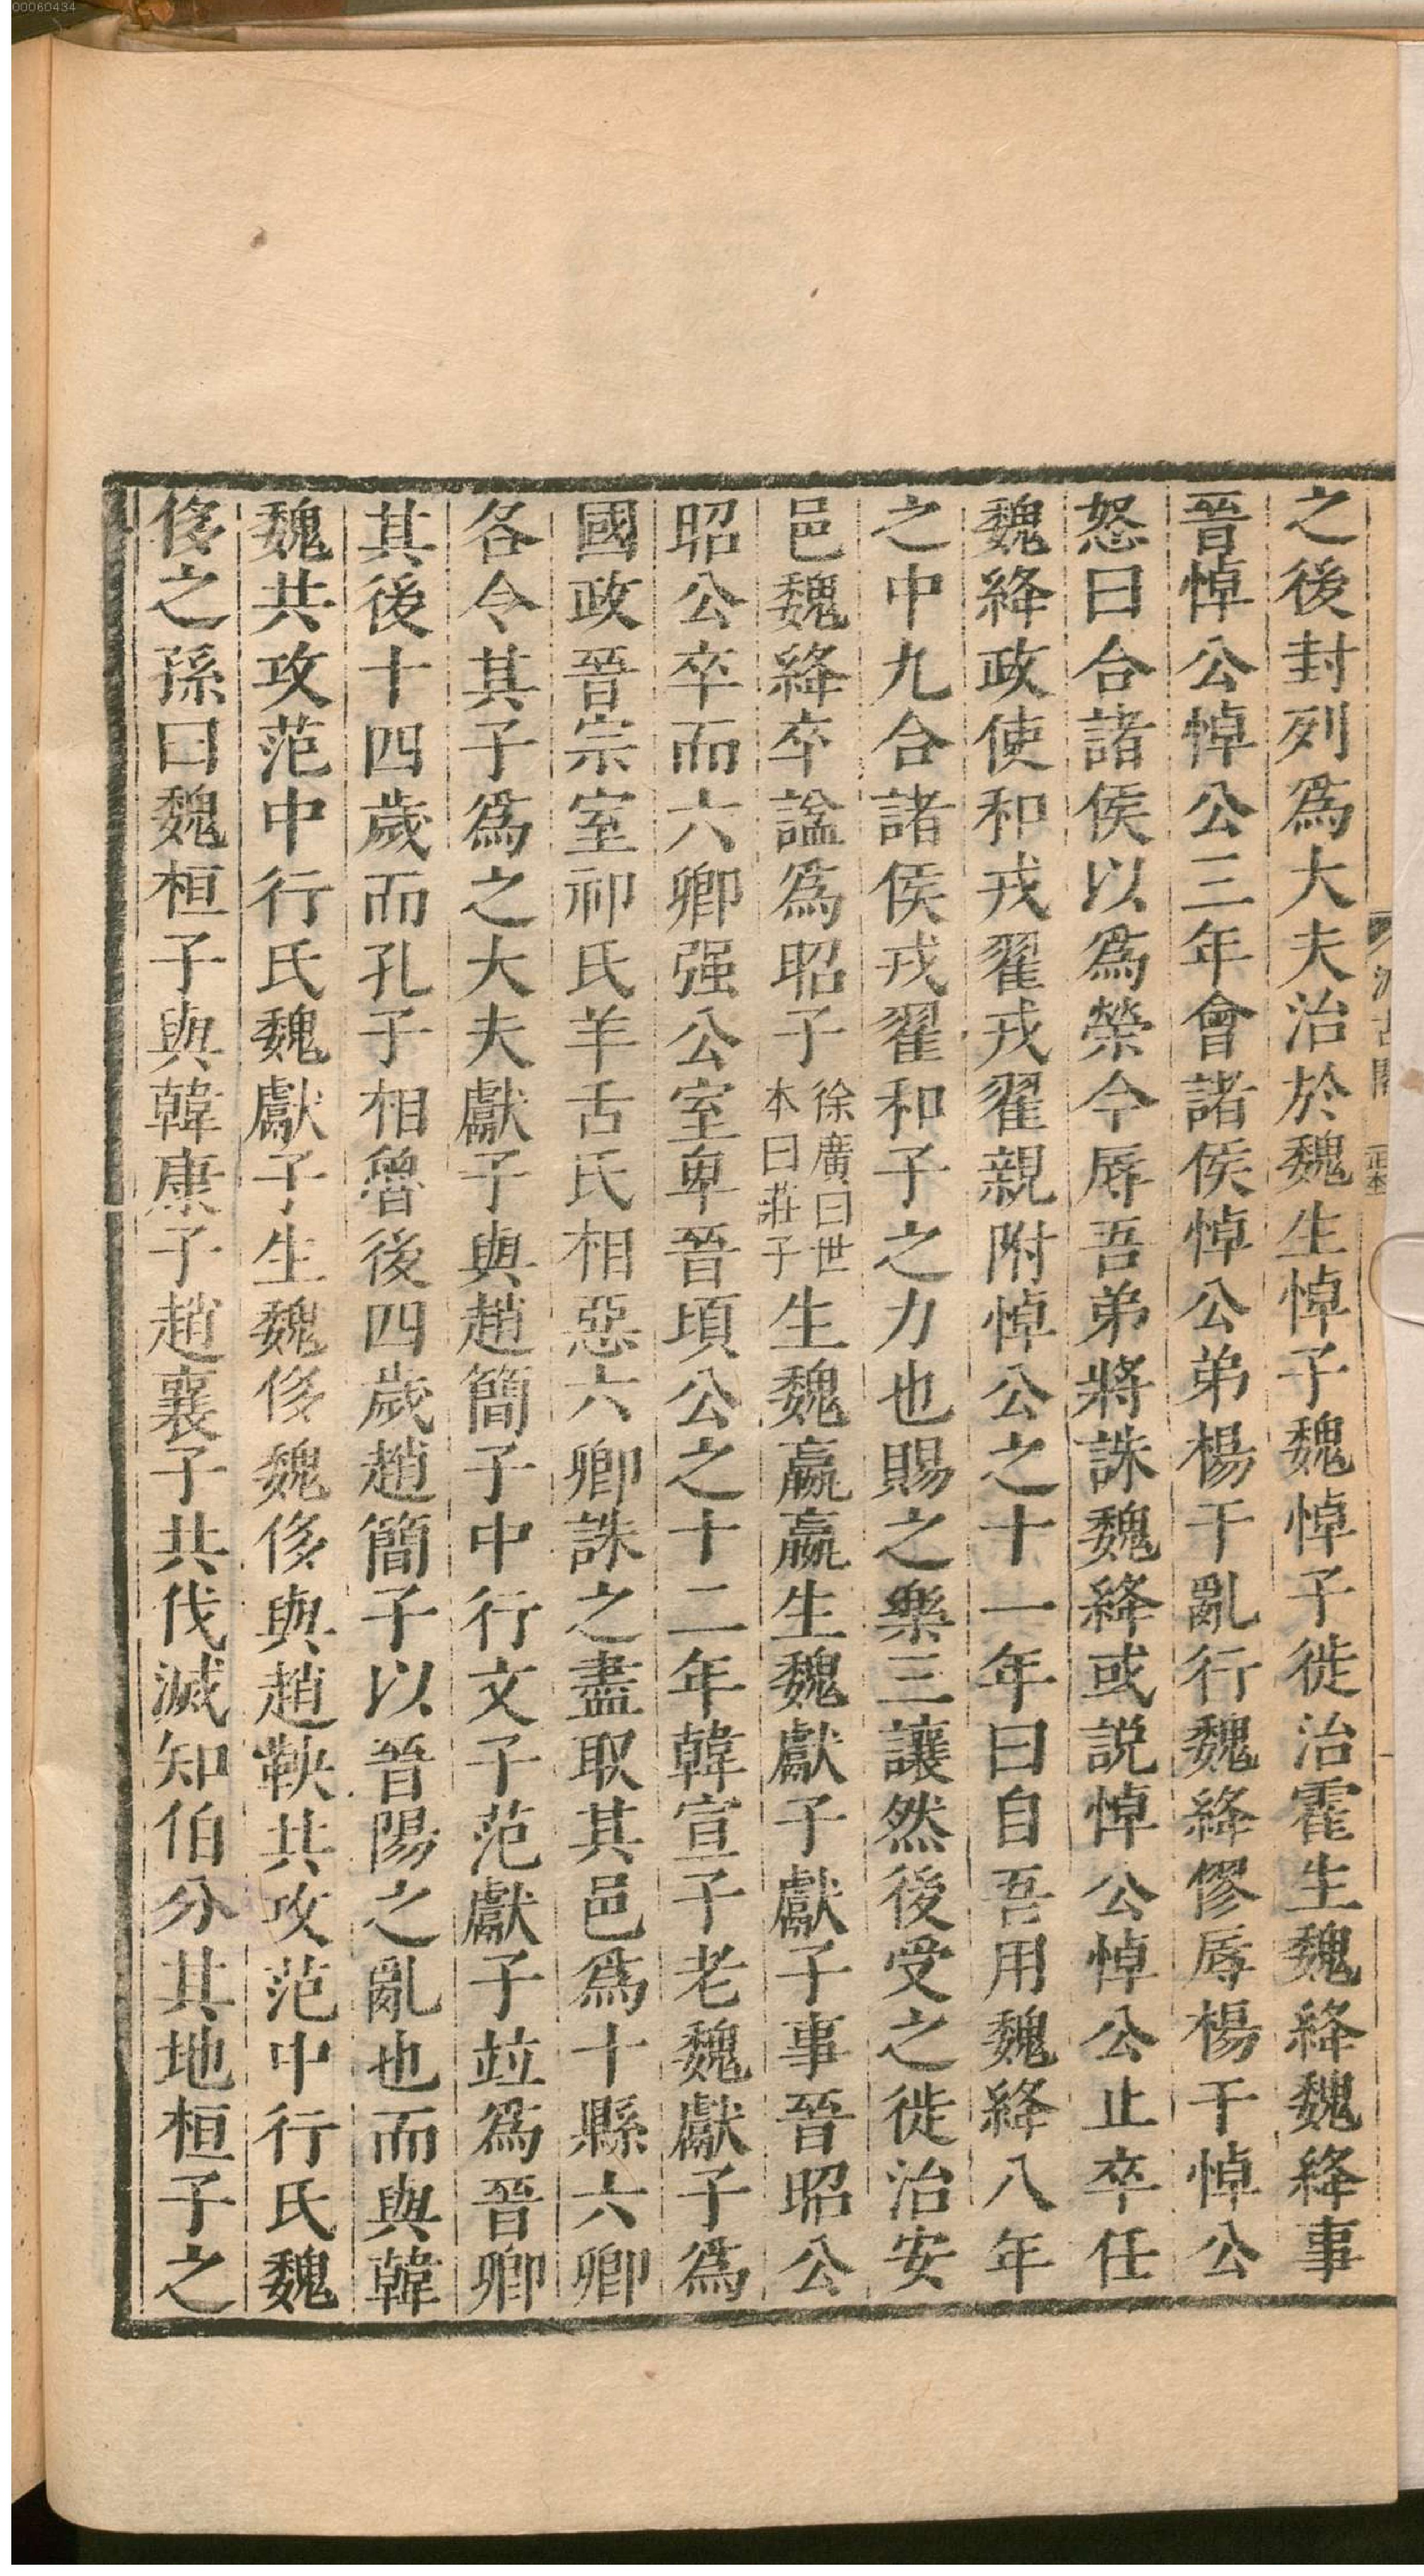 00060434
之後封列爲大夫治於魏生悼子魏悼子徙治霍生魏絳魏絳事
晉悼公悼公三年會諸侯悼公弟楊干亂行魏絳僇辱楊干悼公
怒曰合諸侯以爲榮今辱吾弟將誅魏絳或説悼公悼公止卒任
魏絳政使和戎翟戎翟親附悼公之十一年曰自吾用魏絳八年
之中九合諸侯戎翟和子之力也賜之樂三讓然後受之徙治安
邑魏絳卒諡爲昭子徐廣曰世本曰莊子生魏嬴嬴生魏獻子獻子事晉昭公
昭公卒而六卿强公室卑晉頃公之十二年韓宣子老魏獻子爲
國政晉宗室祁氏羊舌氏相惡六卿誅之盡取其邑爲十縣六卿
各令其子爲之大夫獻子與趙簡子中行文子范獻子竝爲晉卿
其後十四歲而孔子相魯後四歲趙簡子以晉陽之亂也而與韓
魏共攻范中行氏魏獻子生魏侈魏侈與趙鞅共攻范中行氏魏
侈之孫曰魏桓子與韓康子趙襄子共伐滅知伯分其地桓子之